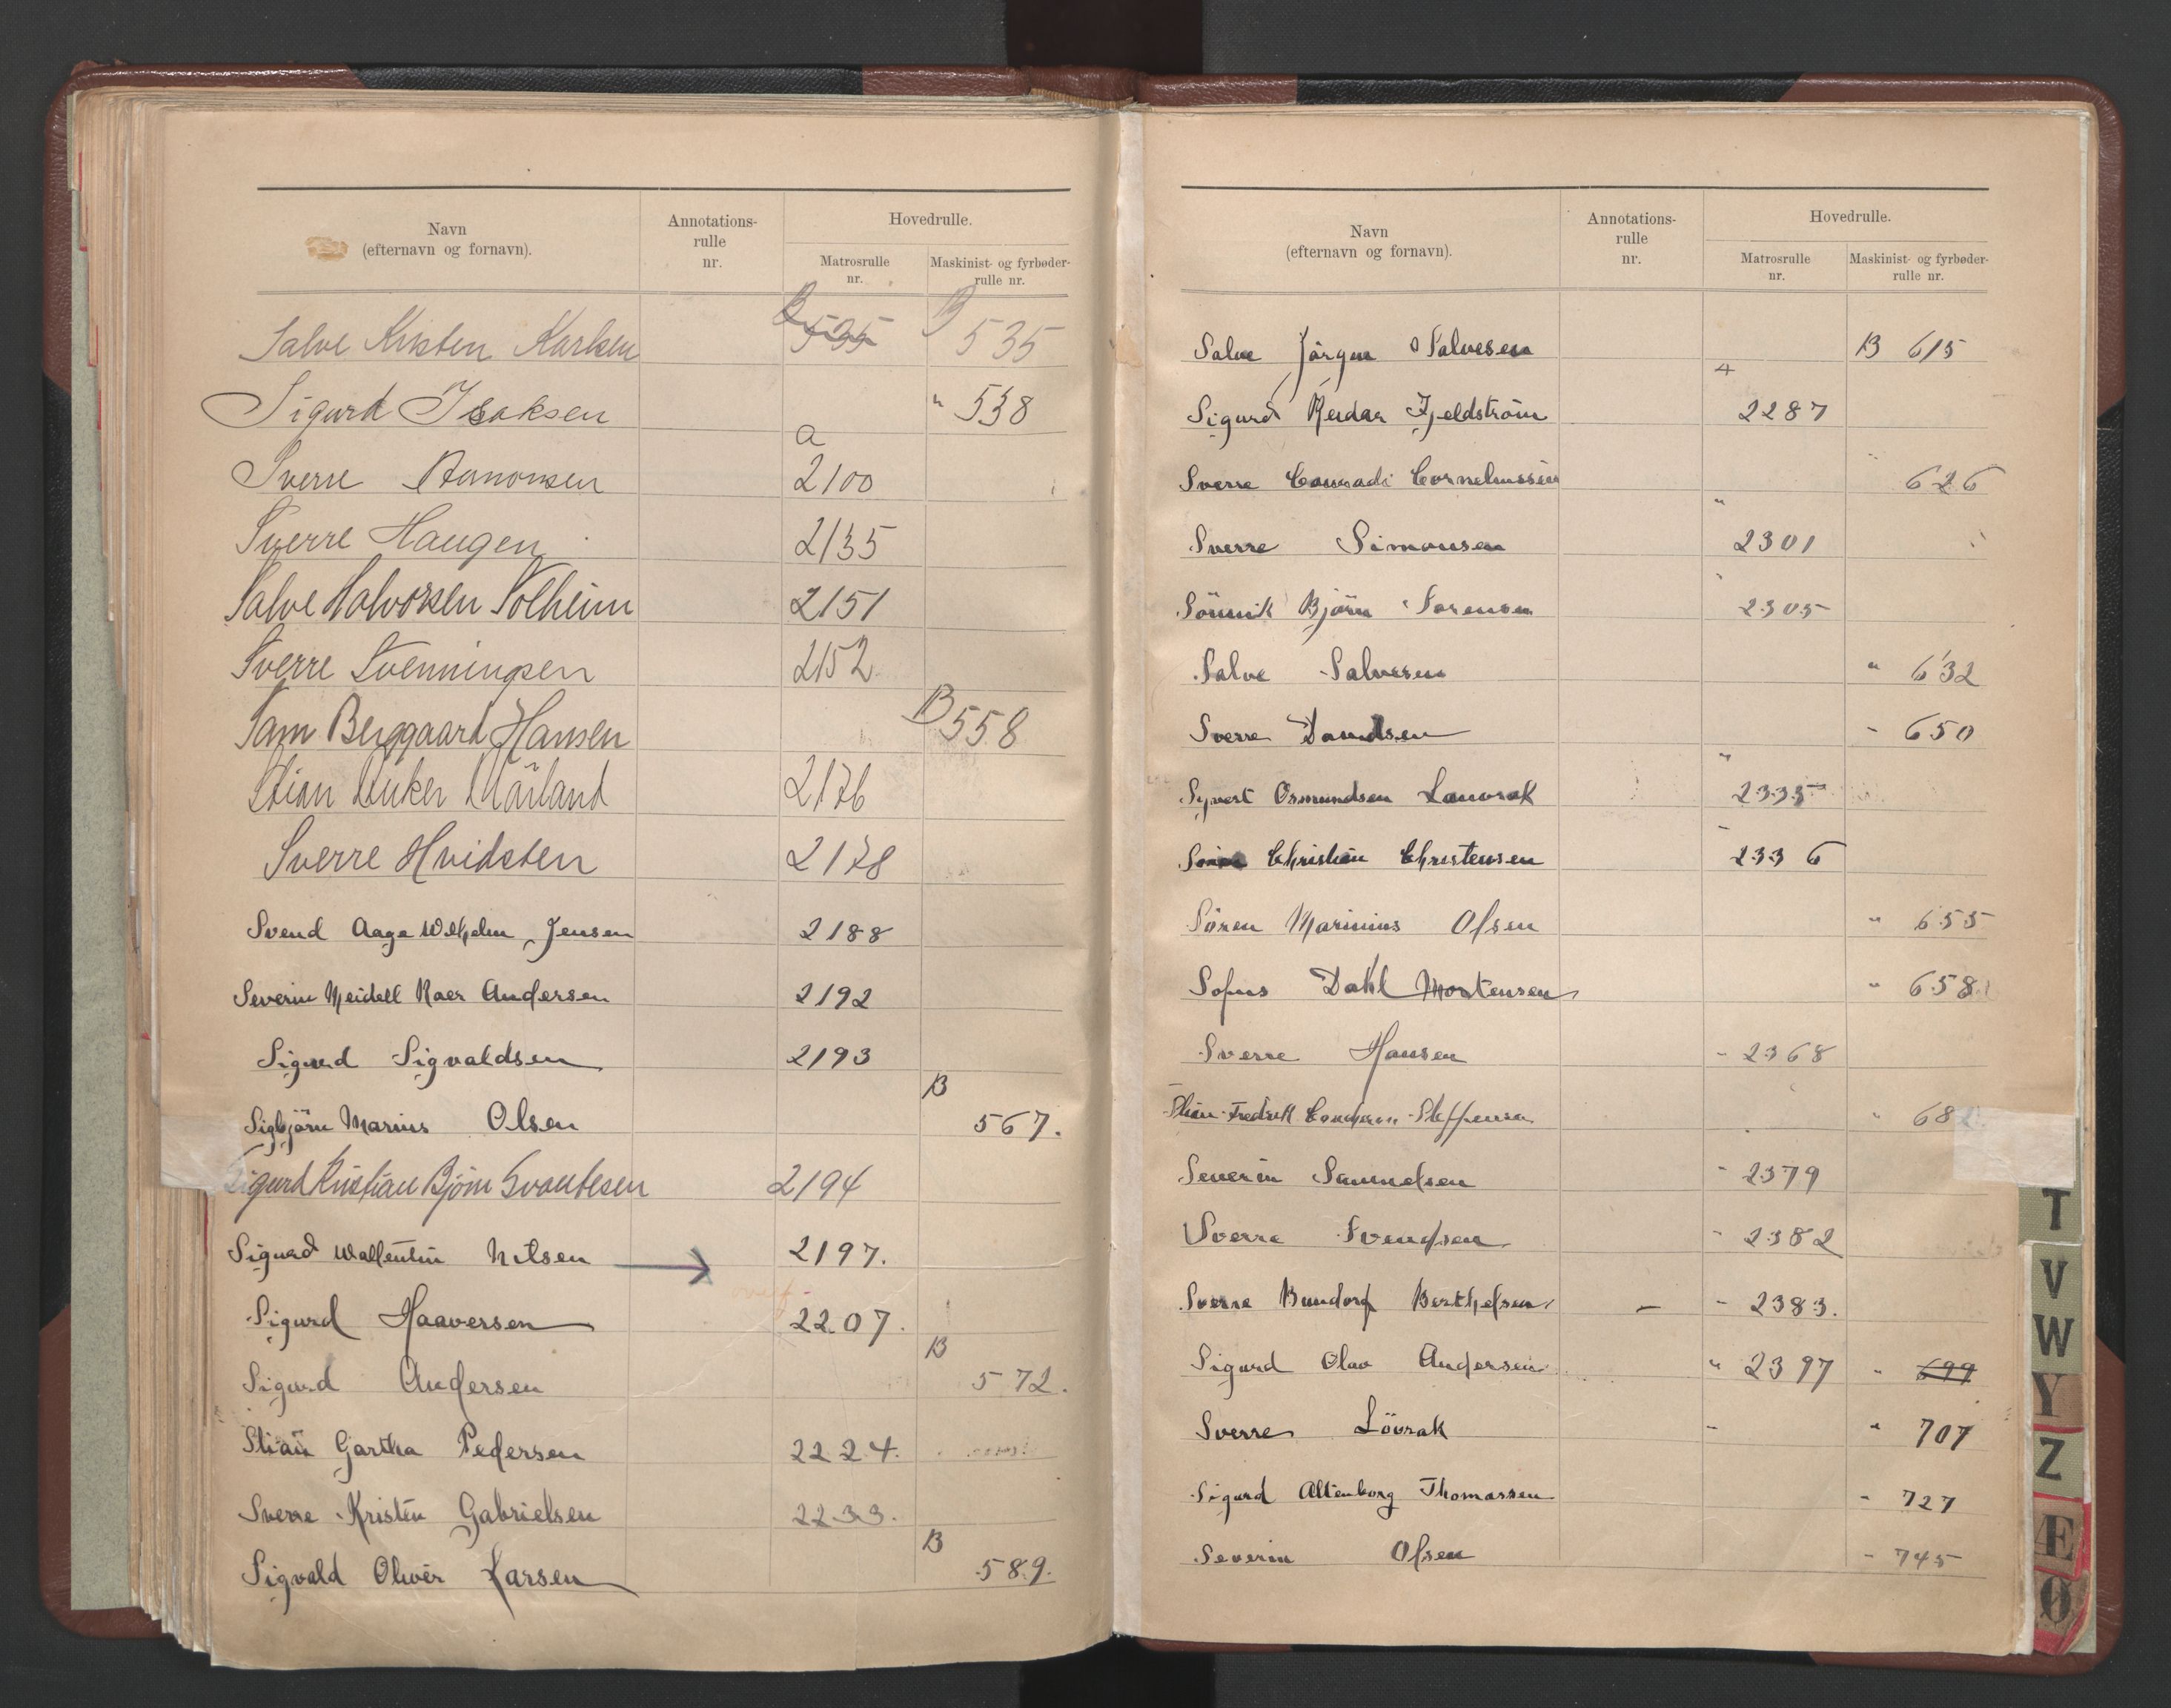 Navn (efternavn og fornavn). Annotations-rulle nr. Hovedrulle. Matrosrulle nr. Maskinist- og fyrbøder-rulle nr.
Salve Kristen Karlsen B 535 B 535
Sigurd Isaksen " 538
Sverre Aanonsen a 2100
Sverre Haugen 2135
Salve Halvorsen Solheim 2151
Sverre Svenningsen 2152
Sam Berggaard Hansen B 558
Stian Mårland 2176
Sverre Hvidsten 2178
Svend Aage Wilhelm Jensen 2188
Severin Meidell Roer Andersen 2192
Sigurd Sigvaldsen 2193
Sigbjörn Marius Olsen B 567.
Sigurd Kristian Bjørn Svantesen 2194
Sigurd Wallentin Nilsen → 2197.
Sigurd Haaversen 2207.
Sigurd Andersen B 572.
Stian Gartha Pedersen 2224.
Sverre Kristen Gabrielsen 2233.
Sigvald Oliver Larsen B 589.
Navn (efternavn og fornavn). Annotations-rulle nr. Hovedrulle. Matrosrulle nr. Maskinist- og fyrbøder-rulle nr.
Salve Jörgen Salvesen B 615
Sigurd Reidar Fjeldström 2287
Sverre Conradi Corneliussen " 626
Sverre Simonsen " 2301
Sönnik Björn Sorensen " 2305
Salve Salvesen " 632
Sverre Davidsen - 650
Syvert Osmundsen Lauvrak " 2335
Christian Christensen - 2336
Sören Marinius Olsen " 655
Sofus Dahl Mortensen " 658
Sverre Hansen - 2368
Stian Fredrik Steffensen " 68
Severin Samuelsen - 2379
Sverre Svendsen - 2382
Sverre Bundorf Berthelsen - - 2383.
Sigurd Olav Andersen " 2397 " 699
Sverre Lövrak - " 707
Sigurd Altenborg Thomassen - 727
Severin Olsen - 745
T
V
W
Y
Z
Æ
Ø